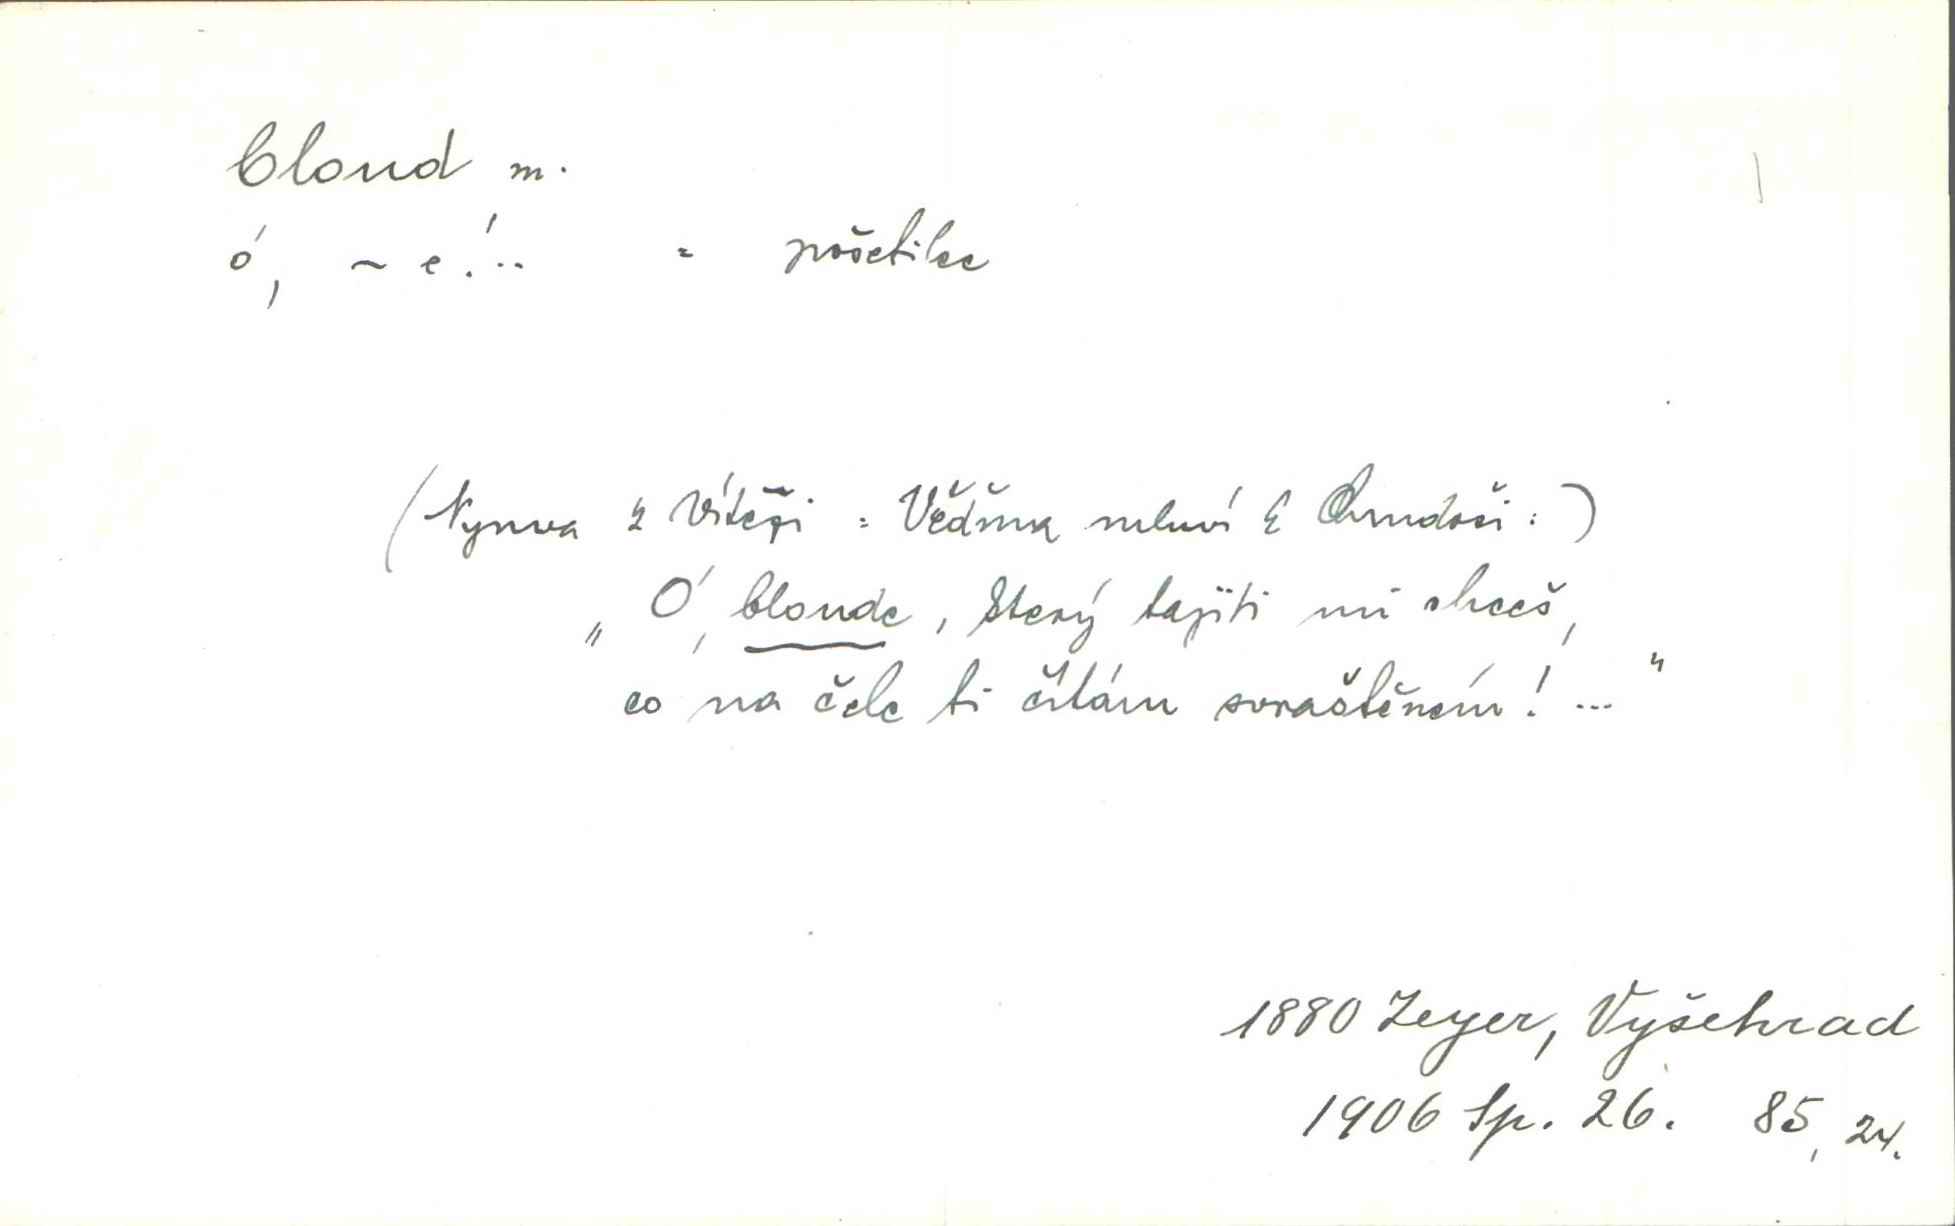 bloud m.
ó, ~ e!.. = pošetilec
(Nynva z Vítězi: Vědma mluví k Chrudoši:)
„Ó, bloude, který tajiti mi chceš,
co na čele ti čítám svraštěném!..."
1880 Zeyer, Vyšehrad
1906 Sp. 26. 85, 24.